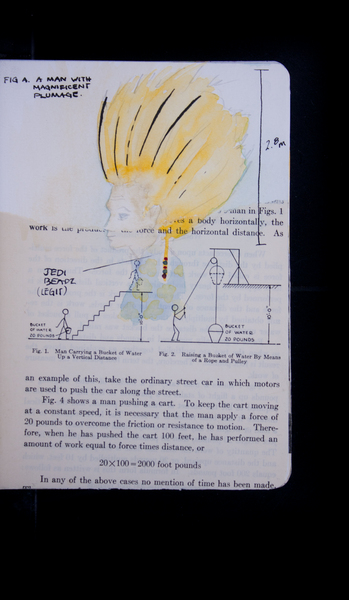 FIG A. A MAN WITH
MAGNIFICENT
PLUMAGE.
2.8m
man in Figs. 1
a body horizontally, the
work is the force and the horizontal distance. As
JEDI
BEADZ
(LEGIT)
BUCKET
OF WATER
20 POUNDS
BUCKET
OF WATER
20 POUNDS
Fig. 1. Man Carrying a Bucket of Water
Up a Vertical Distance
Fig. 2. Raising a Bucket of Water By Means
of a Rope and Pulley
an example of this, take the ordinary street car in which motors
are used to push the car along the street.
Fig. 4 shows a man pushing a cart. To keep the cart moving
at a constant speed, it is necessary that the man apply a force of
20 pounds to overcome the friction or resistance to motion. There-
fore, when he has pushed the cart 100 feet, he has performed an
amount of work equal to force times distance, or
20×100=2000 foot pounds
In any of the above cases no mention of time has been made.